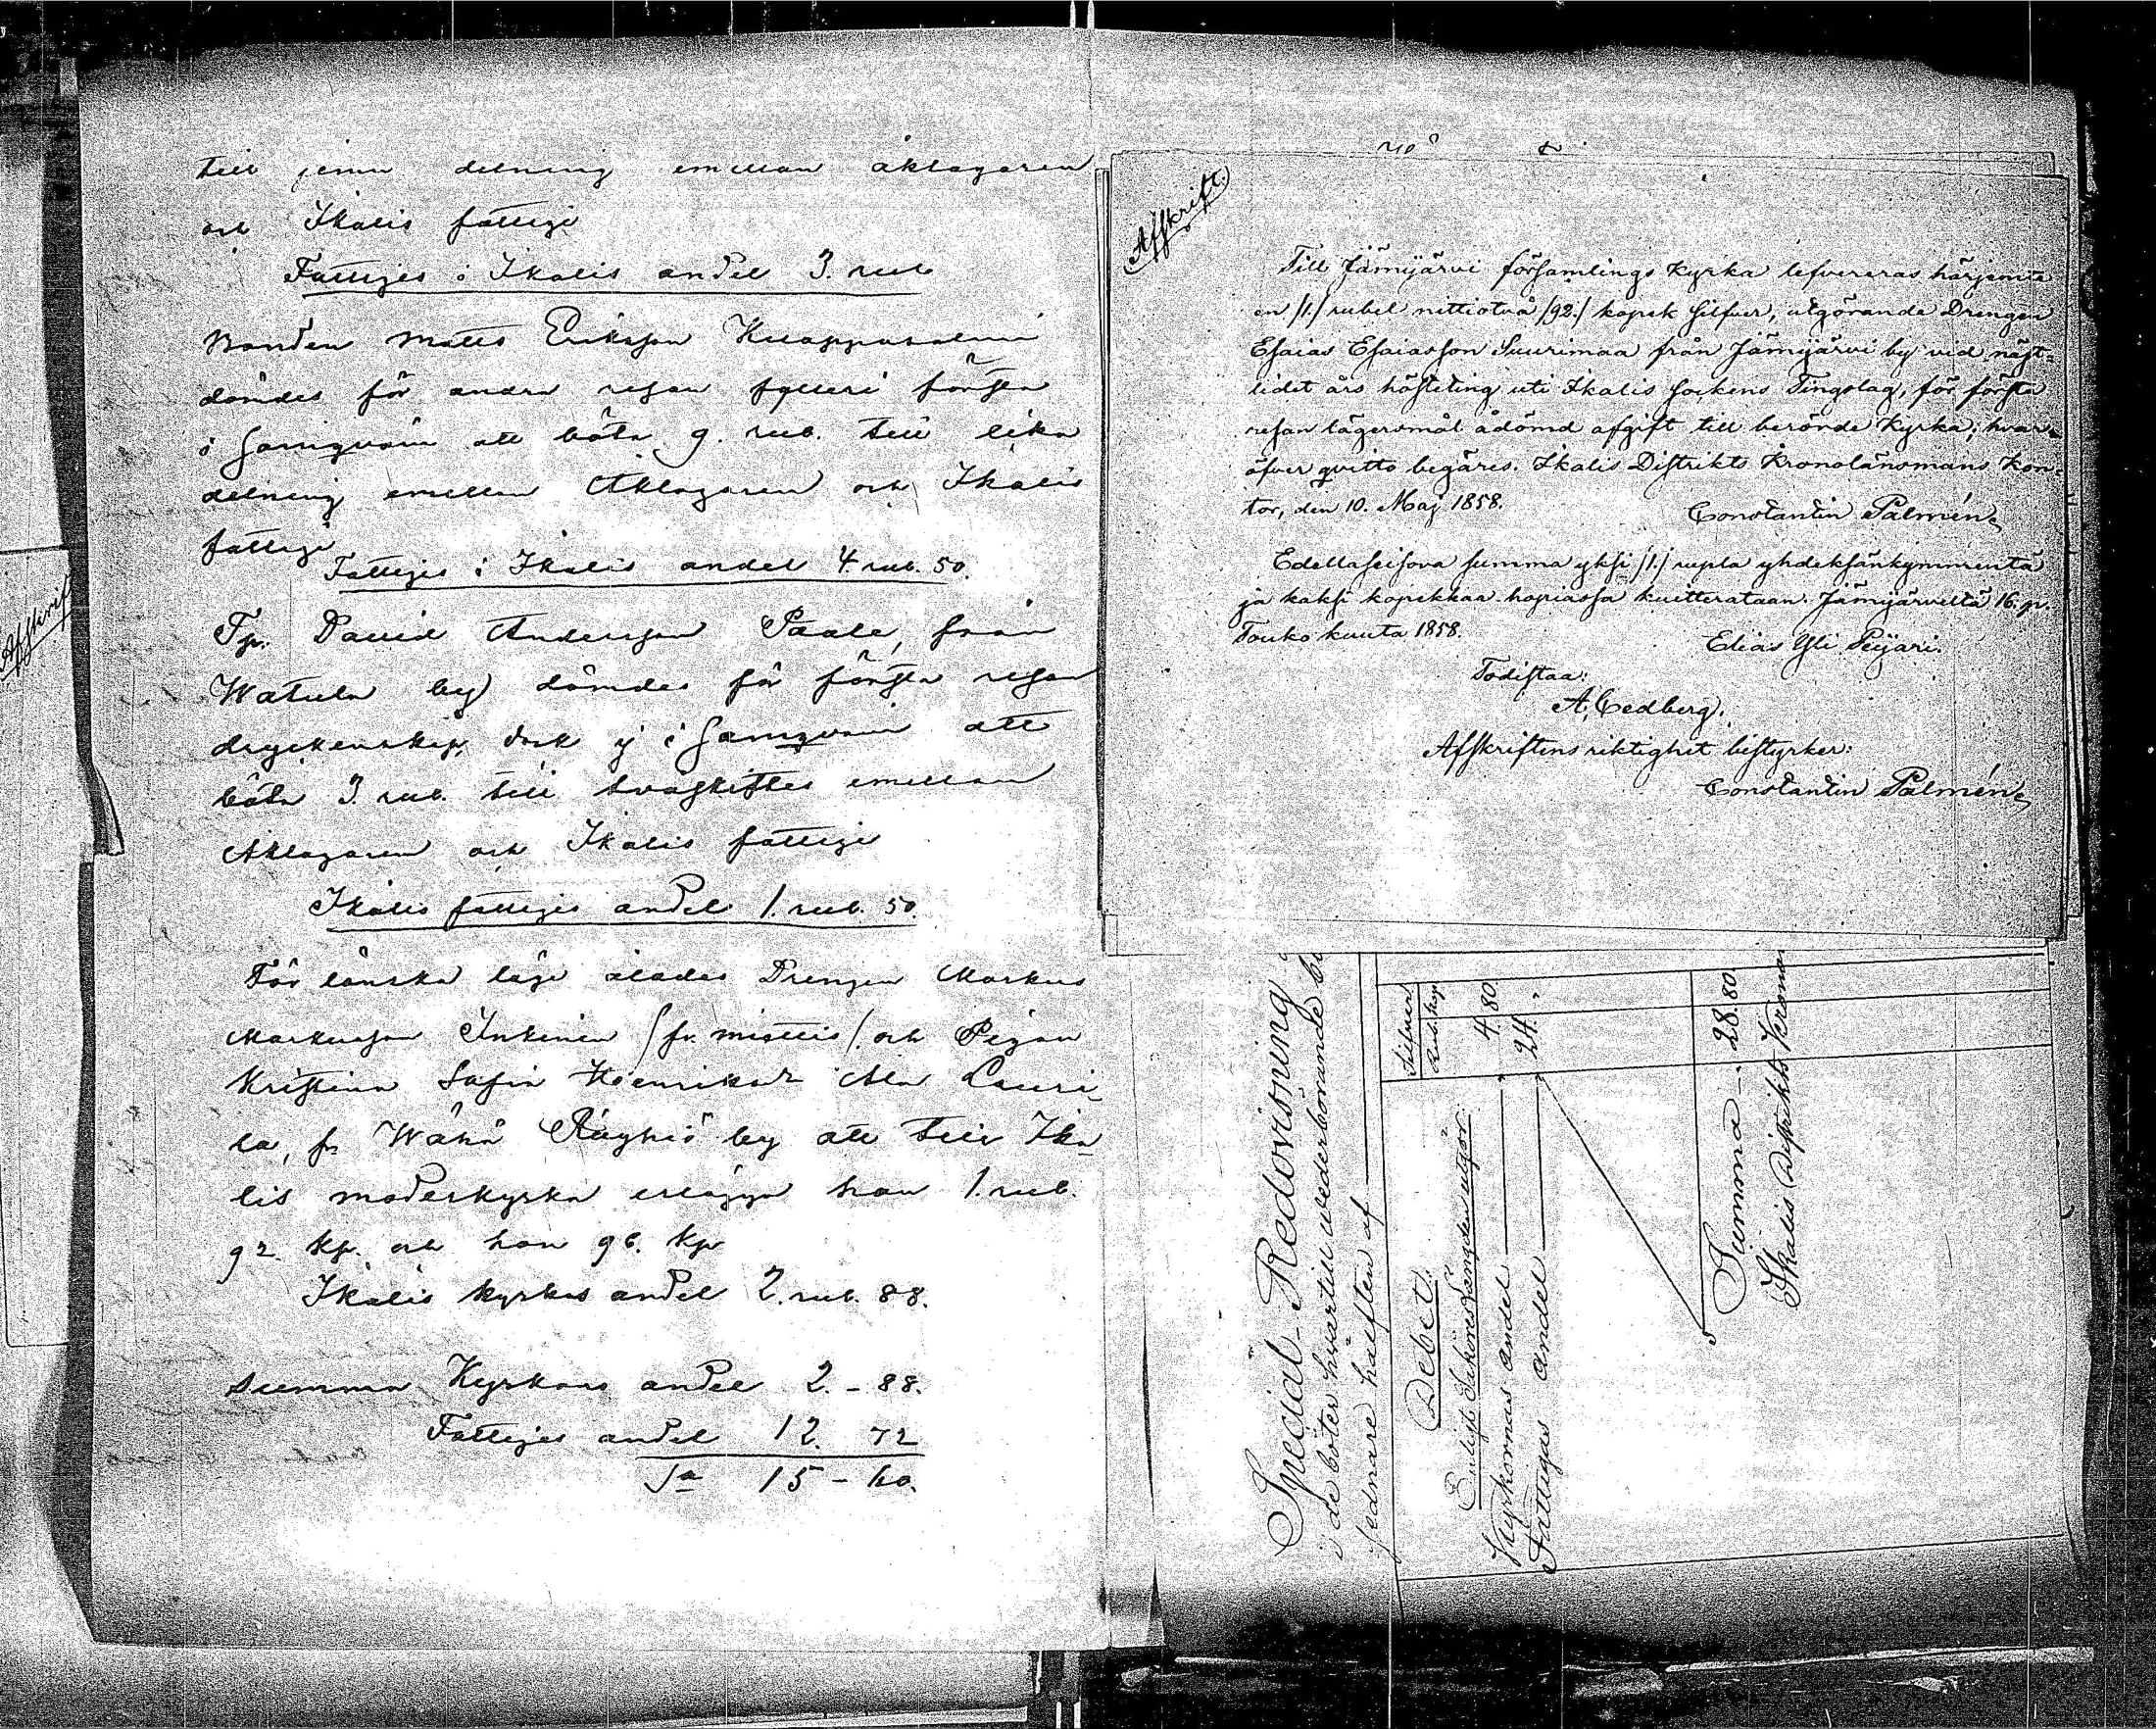 till jemn delning emellan åklagaren
och Ikalis fattige
Fattiges i Ikalis andel 3. rub
Bonden Matts Eriksson
dömdes för andra resan fylleri första
i samqväm att böta 9. rub. till lika
delning emellan Åklagaren och Ikalis
fattige
Fattiges i Ikalis andel 4. rub. 50.
Tp. David Andersson Paale, från
Watula by dömdes för första resan
dryckenskap, dock ej i samqväm att
böta 3. rub. till tvåskiftes emellan
Åklagaren och Ikalis fattige
Ikalis fattiges andel 1. rub. 50.
För lönska läge ålades Drengen Markus
Markusson Inkinen /fr. / och Pigan
Kristina Sofia Henriksdr Ala Lauri
la, fr Wähä Röyhiö by att till Ika
lis moderkyrka erlägga han 1. rub.
92. kp. och hon 96. kp
Ikalis kyrkas andel 2. rub. 88.
Summa Kyrkans andel 2. - 88.
Fattiges andel 12. 72
Sa 15 - 60.
Afskrift.
Afskrift.
Till Jämijärvi församlings Kyrka lefvereras härjemte
en /1./ rubel nittiotvå /92./ kopek silfver, utgörande Drengen
Esaias Esaiasson Suurimaa från Jämijärvi by vid näst=
lidet års hösteting uti Ikalis Sockens Tingslag, för första
resan lägersmål ådömd afgift till berörde Kyrka; hvar=
öfver qvitto begäres. Ikalis Distrikts Kronolänsmans Kon=
tor, den 10. Maj 1858.
Constantin Palmén
Edellaseisova summa yksi /1./ rupla yhdeksänkymmentä
ja kaksi kopekkaa hopiassa kuitterataan. Jämijärveltä 16. p.
Touko kuuta 1858.
Elias Yli Peijari.
Todistaa:
A. Cedberg.
Afskriftens riktighet bestyrker:
Constantin Palmén
Special Redovisning
de böter hvartill vederbörande
sednare hälften af
Debet.
Silfver
Rub. kop.
Enligt Saköreslängden utgör:
Kyrkornas andel 4. 80
Fattigas andel 24. "
Summa 28. 80
Ikalis Distrikts Krono